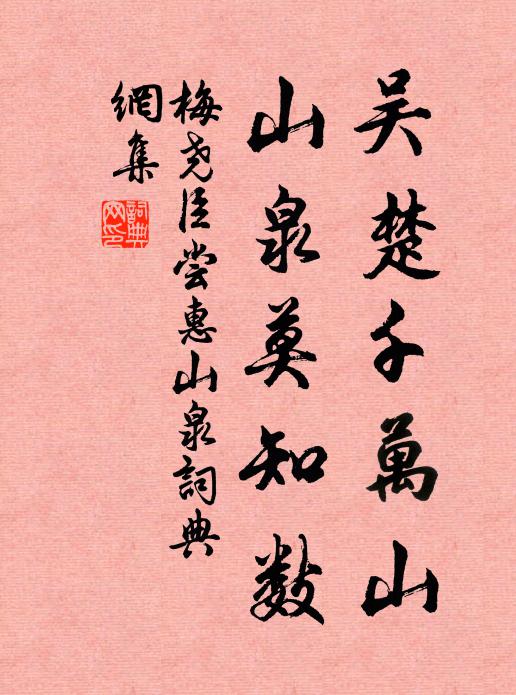 吴楚千萬山
山泉莫知数
梅尧臣尝惠山泉詞典
網集
詞典
网印